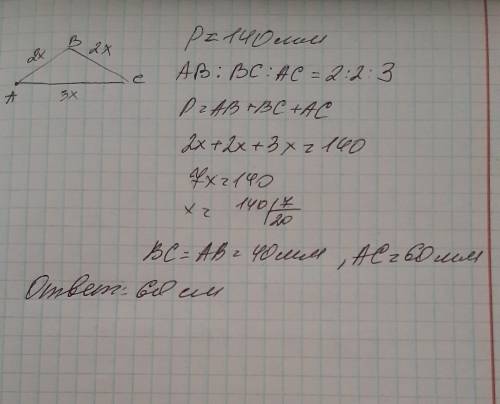 P=140мм
B
2x 2x
A C
3x
AB : BC : AC = 2:2:3
P=AB+BC+AC
2x+2x+3x=140
7x=140
x= 140 7
20
BC=AB=40мм, AC=60мм
Ответ: 60 см